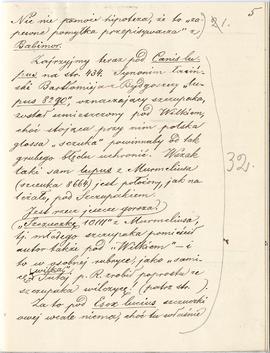 5
Nic nie pomoże hipoteza, że to "za-
pewne pomyłka przepisywacza" z
Babimor.
21.
Zajrzyjmy teraz pod Canis lu-
pus na str. 434. Synonim łaciń-
ski Bartłomieja z Bydgoszczy "lu-
pus 8290" oznaczający szczupaka,
został umieszczony pod Wilkiem,
choć stojąca przy nim polska
glossa "sczuka" powinnaby od tak
grubego błędu uchronić. Wszak
taki sam lupus z Murmeliusa
(szczuka 8664) jest położony, jak na-
leżało, pod Szczupakiem.
32.
Jest rzecz jeszcze gorsza:
"Szczuczkę 10111" z Murmeliusa,
tj. młodego szczupaka pomieścił
autor także pod "Wilkiem" – i
to w osobnej rubryce, jako "sami-
cę wilka"! Tutaj p. R. zrobił poprostu ze
szczupaka wilczycę! (patrz str. ).
Za to pod Esox lucius szczuczki
owej wcale niema, choć tu właśnie